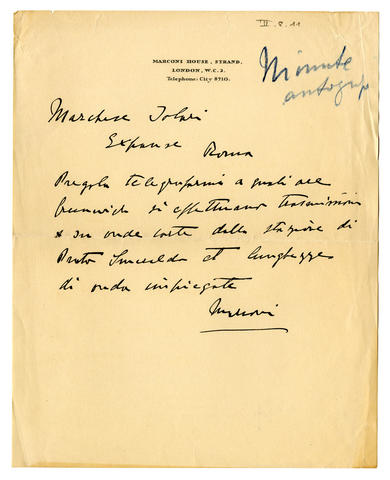 II.8.11
MARCONI HOUSE, STRAND,
LONDON, W.C.2.
Telephone: City 8710.
Minuta
autografa
Marchese Solari
Expanse
Roma
Pregola telegrafarmi a quali ore
Greenwich si effettuano trasmissioni
su onde corte dalla stazione di
Porto Smeraldo et lunghezze
di onda impiegate
Marconi